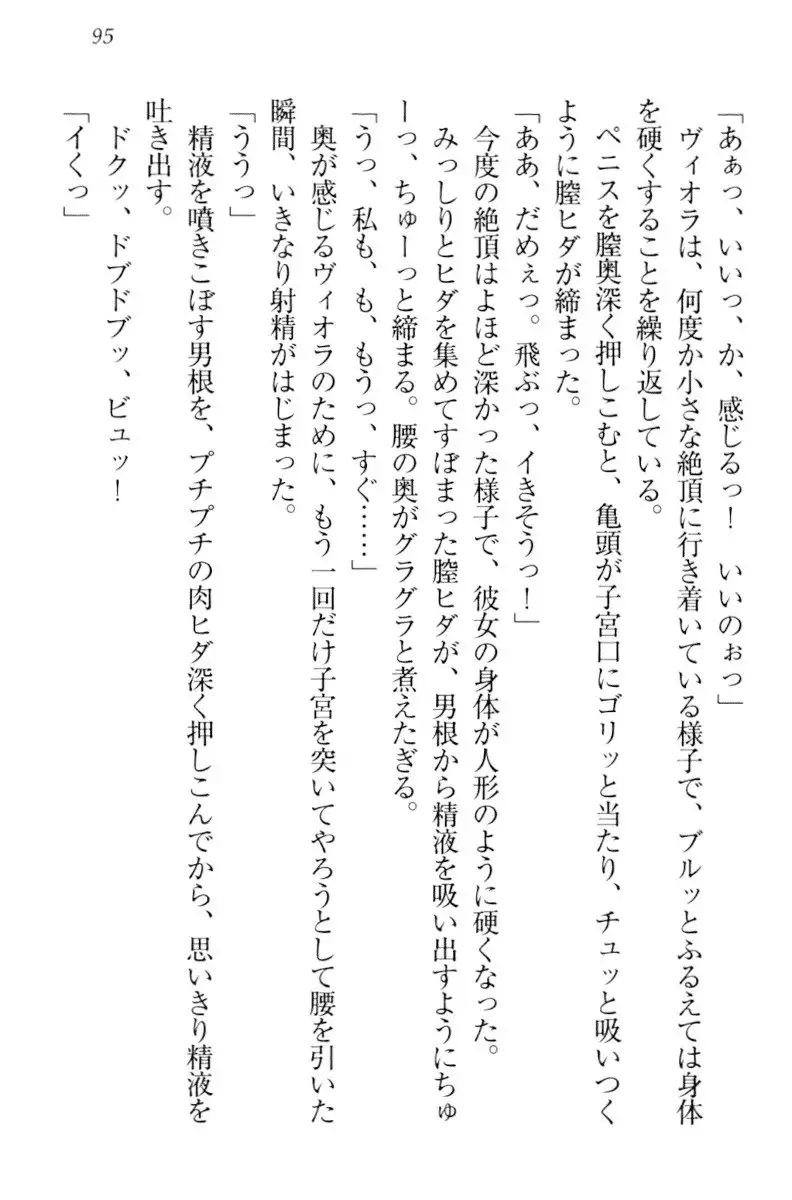 95
「あぁっ、いいっ、か、感じるっ！　いいのぉっ」
　ヴィオラは、何度か小さな絶頂に行き着いている様子で、ブルッとふるえては身体
を硬くすることを繰り返している。
　ペニスを膣奥深く押しこむと、亀頭が子宮口にゴリッと当たり、チュッと吸いつく
ように膣ヒダが締まった。
「ああ、だめぇっ。飛ぶっ、イきそうっ！」
　今度の絶頂はよほど深かった様子で、彼女の身体が人形のように硬くなった。
　みっしりとヒダを集めてすぼまった膣ヒダが、男根から精液を吸い出すようにちゅ
ーっ、ちゅーっと締まる。腰の奥がグラグラと煮えたぎる。
「うっ、私も、も、もうっ、すぐ……」
　奥が感じるヴィオラのために、もう一回だけ子宮を突いてやろうとして腰を引いた
瞬間、いきなり射精がはじまった。
「ううっ」
　精液を噴きこぼす男根を、プチプチの肉ヒダ深く押しこんでから、思いきり精液を
吐き出す。
　ドクッ、ドブドブッ、ビュッ！
「イくっ」